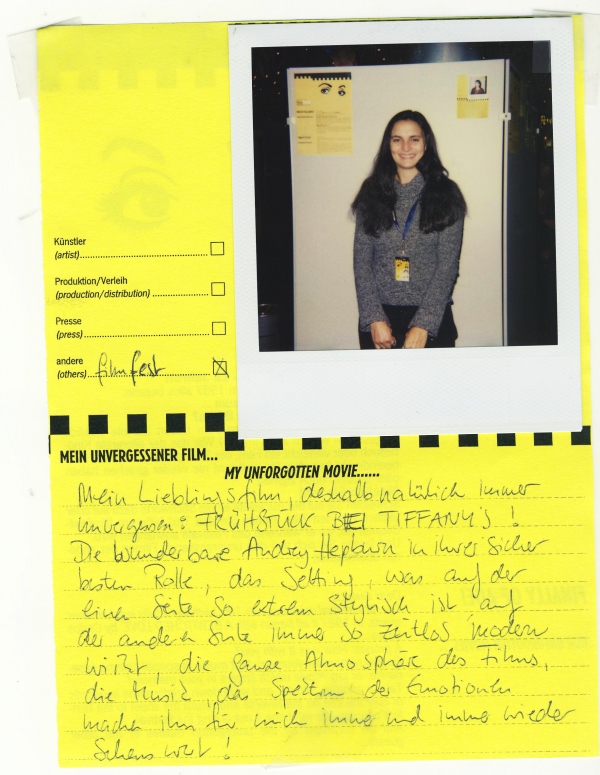 Künstler
(artist)
Produktion/Verleih
(production/distribution)
Presse
(press)
andere
(others) filmfest
MEIN UNVERGESSENER FILM...
MY UNFORGOTTEN MOVIE......
Mein Lieblingsfilm, deshalb natürlich immer
unvergessen: FRÜHSTÜCK BEI TIFFANY'S!
Die wunderbare Audrey Hepburn in ihrer sicher
besten Rolle, das Setting, was auf der
einen Seite so extrem stylisch ist, auf
der anderen Seite immer so zeitlos modern
wirkt, die ganze Atmosphäre des Films,
die Musik, das Spektrum der Emotionen
machen ihn für mich immer und immer wieder
sehenswert!